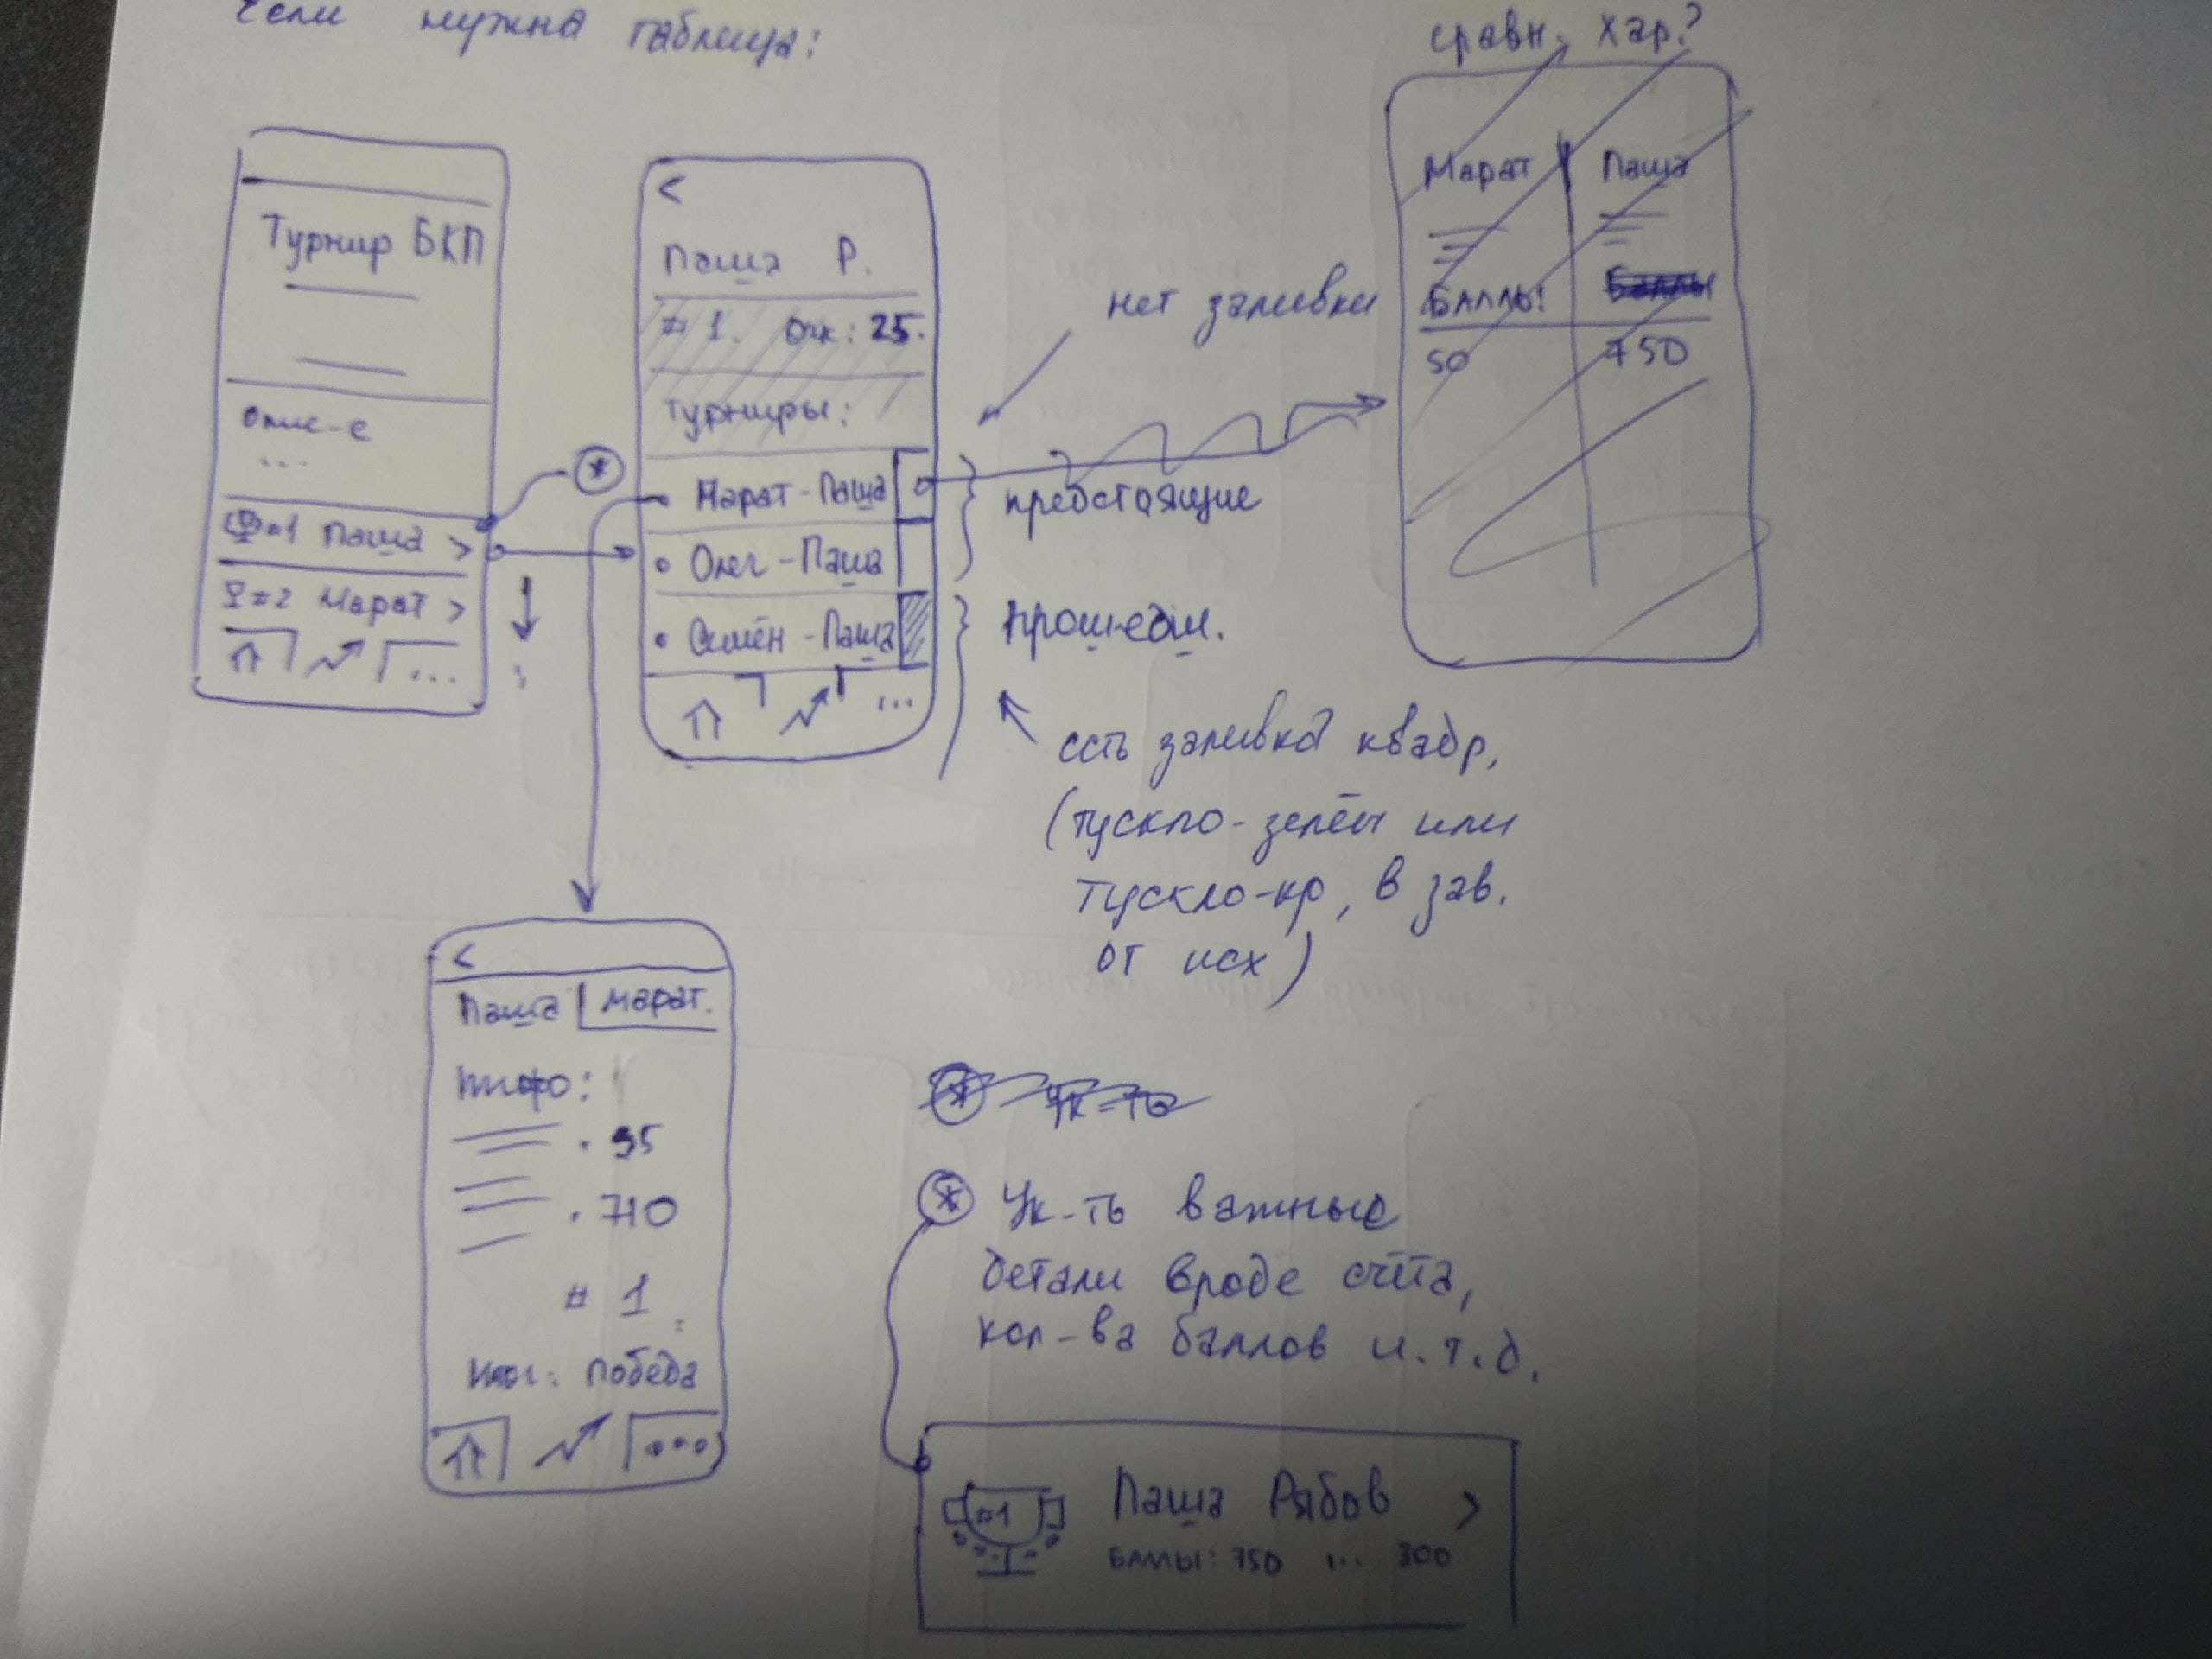 Если нужна таблица:
Турнир БКП
Опис-е
...
#1 Паша >
#2 Марат >
...
*
<
Паша Р.
# 1. Очк: 25.
Турниры:
Марат - Паша
Олег - Паша
Семён - Паша
...
нет заливки
предстоящие
прошедш.
есть заливка квадр,
(тускло-зелён или
тускло-кр, в зав.
от исх)
сравн. хар?
Марат Паша
Баллы: Баллы
50 750
<
Паша Марат.
Инфо:
. 95
. 710
# 1
Итог: Победа
* Ук-ть
* Ук-ть важные
детали вроде счёта,
кол-ва баллов и.т.д.
#1 Паша Рябов >
Баллы: 750 ... 300